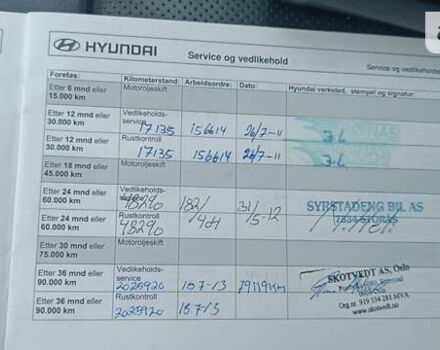 HYUNDAI
Service og vedlikehold
Service og vedlikeho
Foretas: Kilometerstand: Arbeidsordre: Dato: Hyundai verksted, stempel og signatur:
Etter 6 mnd eller 15.000 km Motoroljeskift
Etter 12 mnd eller 30.000 km Vedlikeholds-service 17135 156614 26/7-11 3.L
Etter 12 mnd eller 30.000 km Rustkontroll 17135 156614 26/7-11 3.L
Etter 18 mnd eller 45.000 km Motoroljeskift
Etter 24 mnd eller 60.000 km Vedlikeholds- 48290 182/ 31/ SYRSTADENG BIL AS
Etter 24 mnd eller 60.000 km Rustkontroll 48290 5-12
Etter 30 mnd eller 75.000 km Motoroljeskift
Etter 36 mnd eller 90.000 km Vedlikeholds-service 2025920 18.7-13 79119KM SKOTVEDT AS, Oslo
Etter 36 mnd eller 90.000 km Rustkontroll 2025920 18.7-13
Org.nr. 919 534 281 MVA
www.skotvedt.no